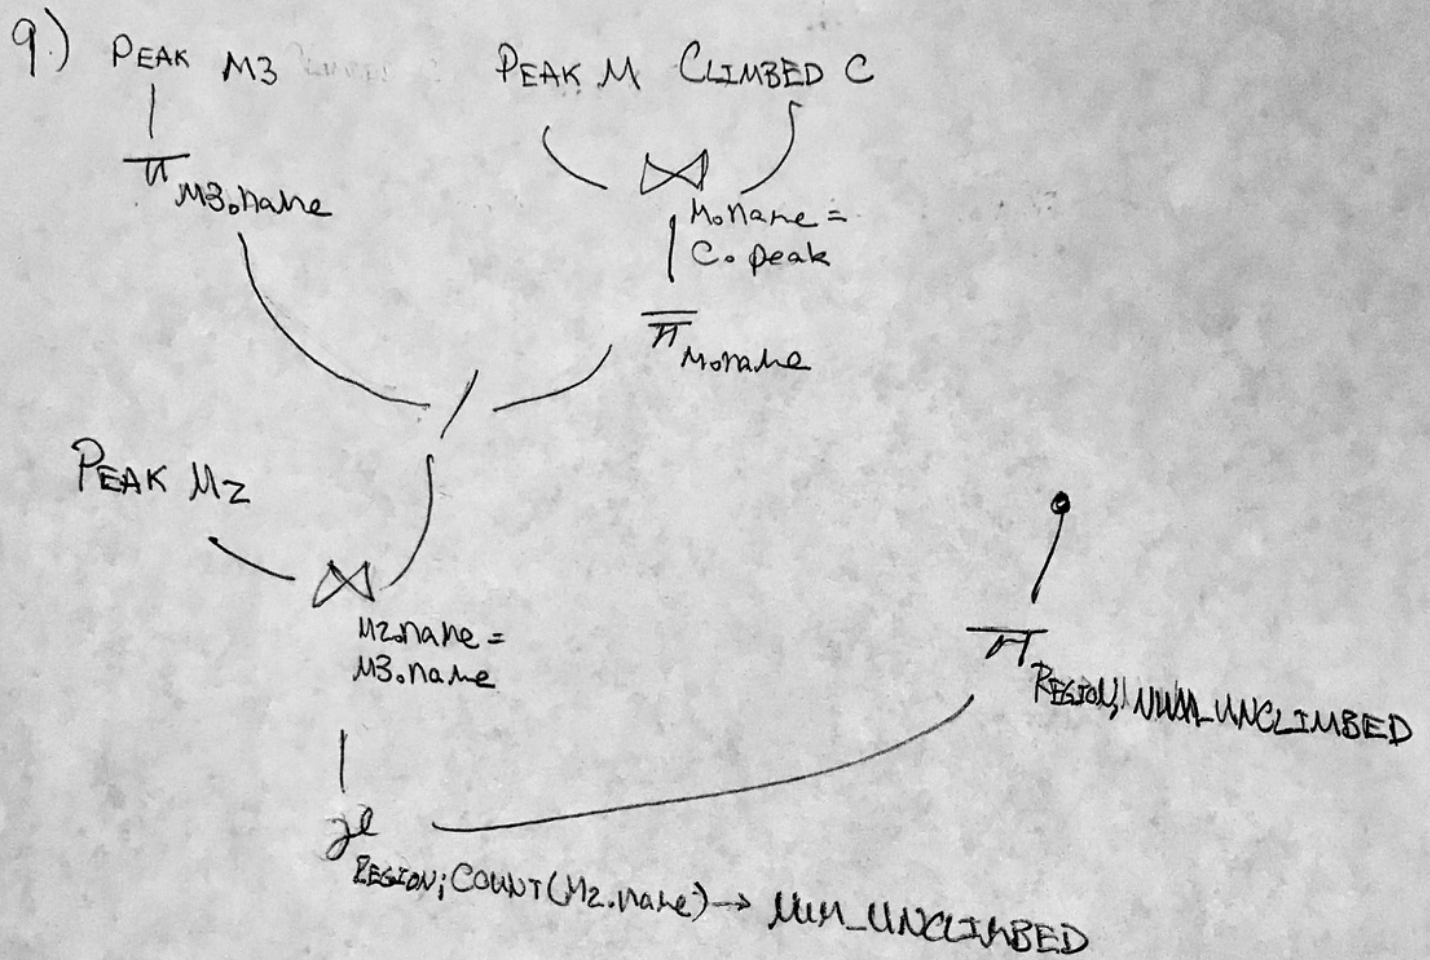 9.) PEAK M3
PEAK M CLIMBED C
π M3.name
⋈ M.name =
C.peak
π M.name
/
PEAK M2
⋈
M2.name =
M3.name
π REGION, NUM_UNCLIMBED
REGION; COUNT(M2.name) → NUM_UNCLIMBED